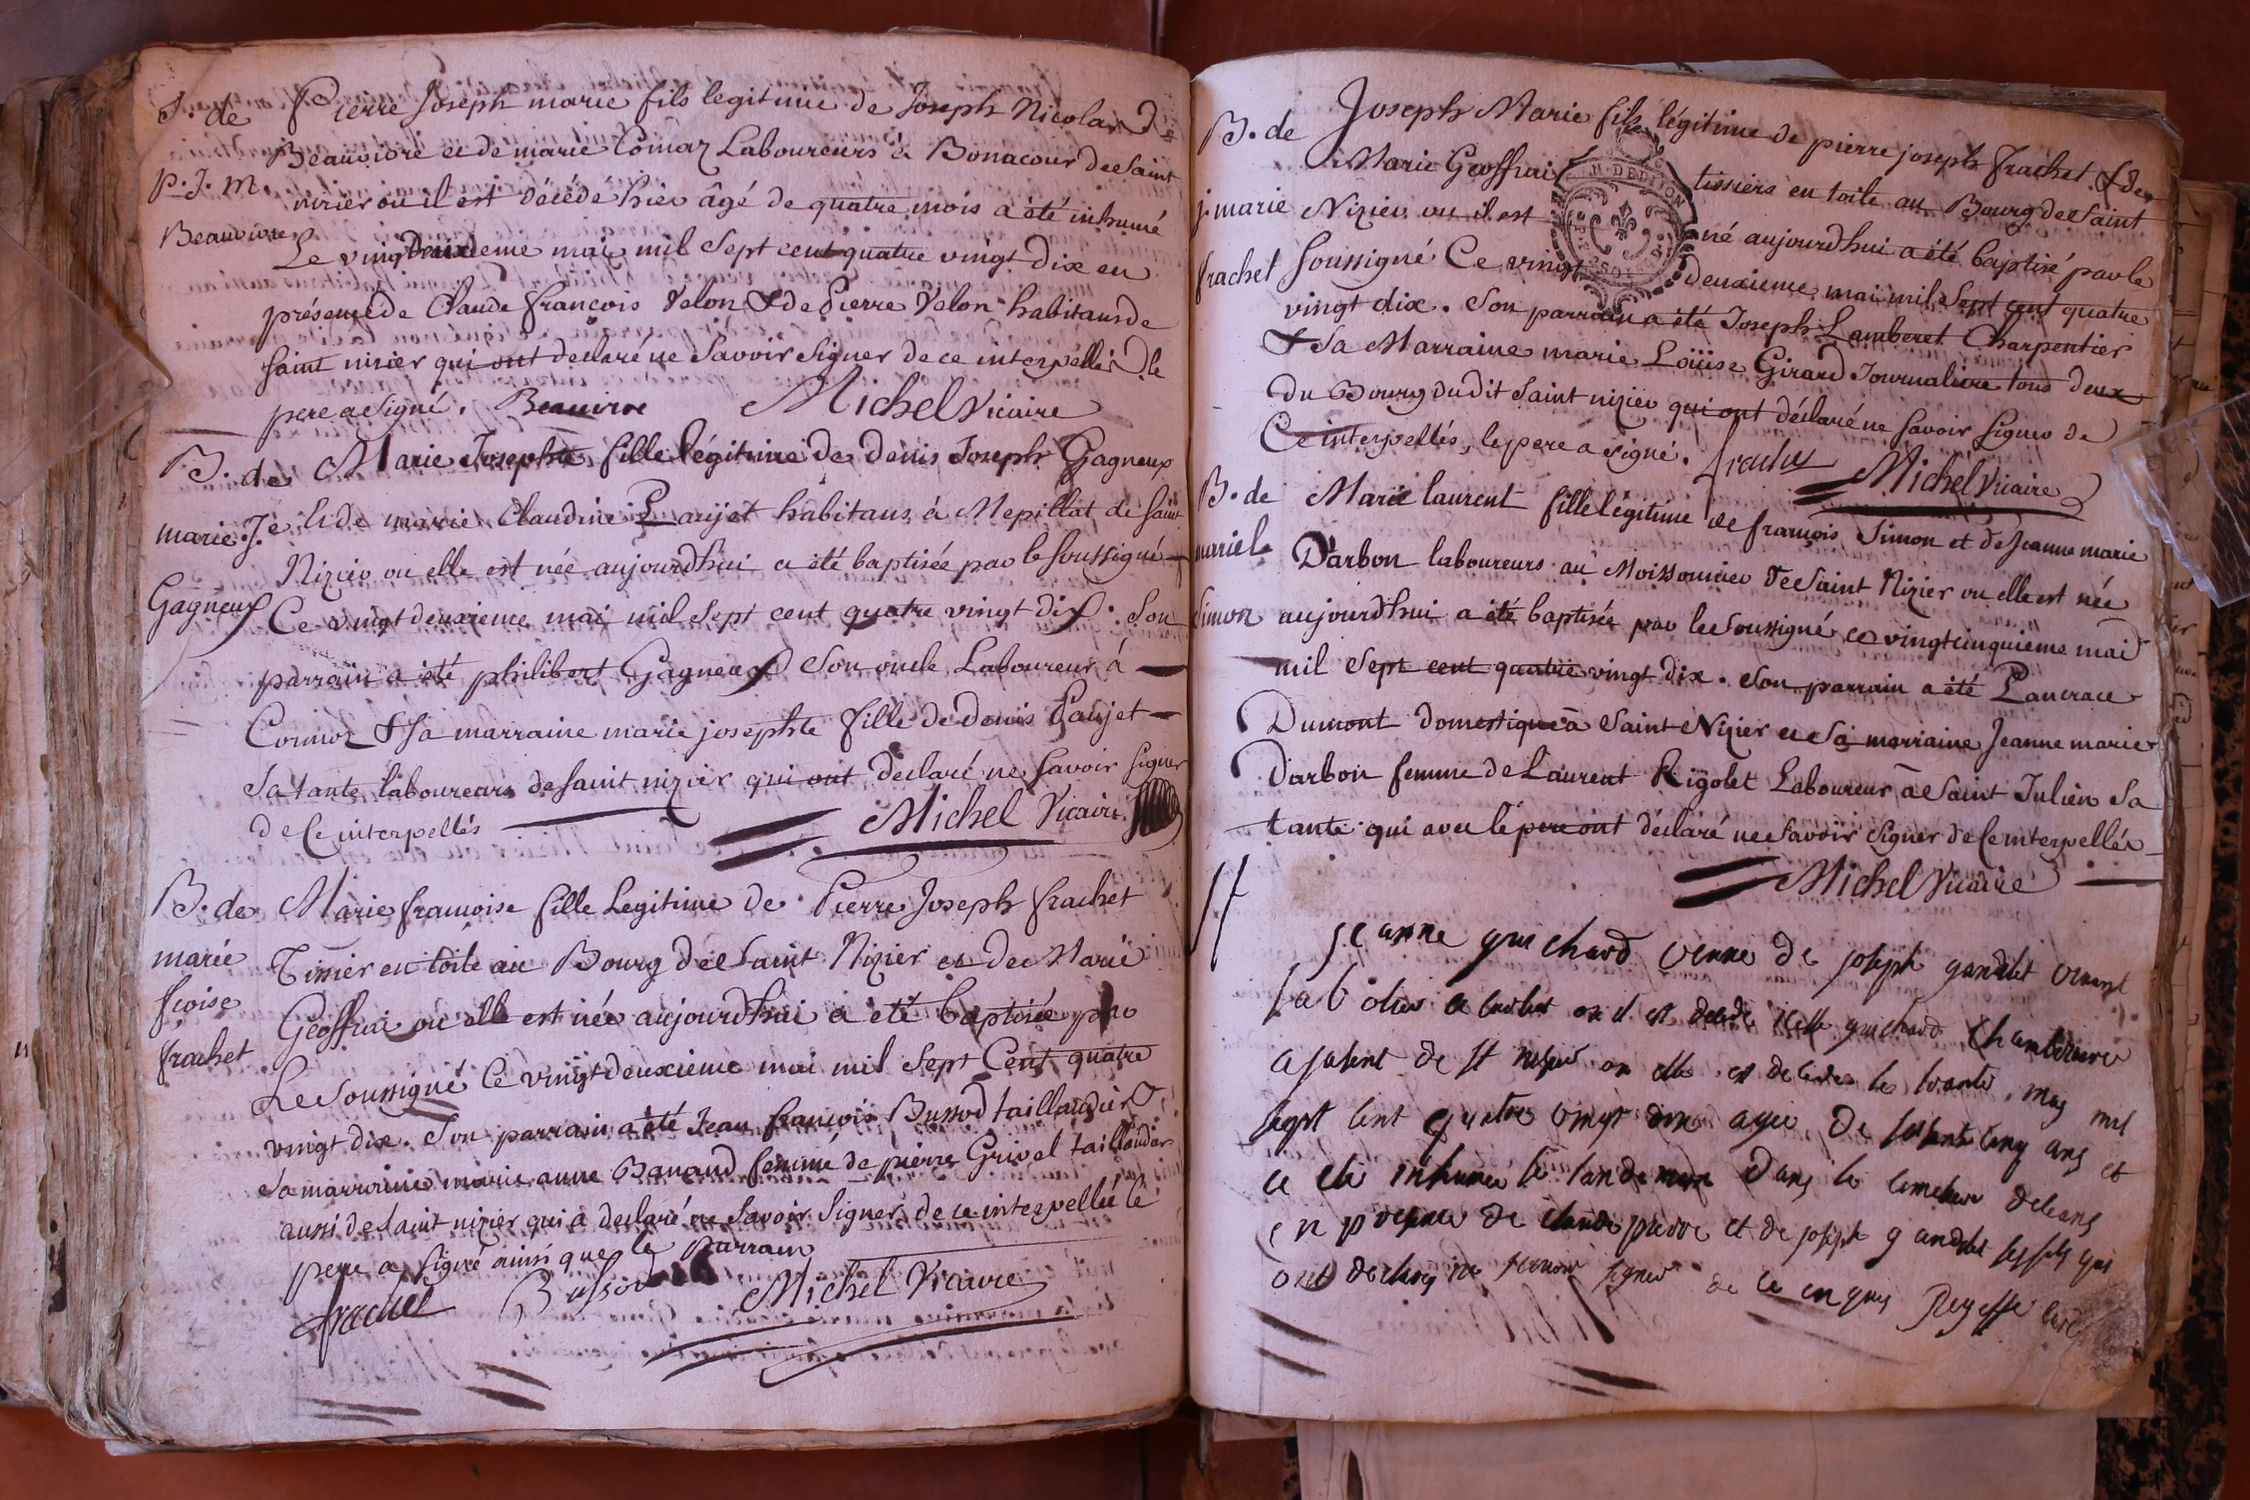 S. de
P. J. M.
Beauvivre
Pierre Joseph marie fils legitime de Joseph Nicolas De
Beauvivre et de marie Comaz Laboureurs à Bonacour de Saint
nizier ou il est décédé hier âgé de quatre mois a été inhumé
Le vingt Deuxieme mai mil Sept cent quatre vingt Dix en
présence de Claude françois Velon & de Pierre Velon habitans de
saint nizier qui ont declaré ne Savoir Signer de ce interpellés. le
pere a Signé. Beauvivre Michel Vicaire
B. de
marie. J.e
Gagneux
Marie Josephte fille légitime de denis Joseph Gagneux
& de marie Claudine Paujet habitans à Mepillat de Saint
Nizier ou elle est née aujourdhui a été baptisée par le Soussigné
Ce vingt deuxieme mai mil Sept cent quatre vingt dix. Son
parrain a été philibert Gagneux Son oncle Laboureur à
Cormoz & sa marraine marie josephte fille de denis Paujet
Sa tante laboureurs de saint nizier qui ont declaré ne Savoir signer
de ce interpellés Michel Vicaire
B. de
marie
fçoise
frachet
Marie françoise fille Legitime de Pierre Joseph frachet
Tissier en toile au Bourg de Saint Nizier et de Marie
Geoffrai ou elle est née aujourdhui a été baptisée par
Le Soussigné Ce vingt deuxieme mai mil Sept Cent quatre
vingt dix. Son parrain a été Jean françois Bussod taillandier &
Sa marraine marie anne Banand femme de pierre Grivel taillandier
aussi de Saint nizier qui a declaré ne Savoir Signer de ce interpellée le
pere a Signé ainsi que le parrain
frachet Bussod Michel Vicaire
B. de
j. marie
frachet
Joseph Marie fils légitime de pierre joseph frachet & de
Marie Geoffrai tissiers en toile au Bourg de Saint
Nizier ou il est né aujourdhui a été baptisé par le
Soussigné Ce vingt deuxieme mai mil Sept cent quatre
vingt dix. Son parrain a été Joseph Lamberet Charpentier
& Sa Marraine marie Loüise Girard Journaliere tous deux
du Bourg dudit Saint nizier qui ont déclaré ne Savoir Signer de
Ce interpellés, le pere a signé. frachet Michel Vicaire
B. de
marie l.
Simon
Marie laurent fille légitime de françois Simon et de Jeanne marie
Darbon laboureurs au Moissonnier de Saint Nizier ou elle est née
aujourdhui a été baptisée par le Soussigné ce vingt cinquieme mai
mil Sept cent quatre vingt dix. Son parrain a été Pancrace
Dumont domestique à Saint Nizier et Sa marraine Jeanne marie
Darbon femme de Laurent Rigolet Laboureur à Saint Julien Sa
tante qui avec le pere ont déclaré ne Savoir Signer de Ce interpellés
Michel Vicaire
jeanne guichard veuve de joseph gandlet vivant
ou il est decede icelle guichard
de st nisier ou elle est decedee le trante may mil
sept cent quatre vingt dix agee de soisante cinq ans et
a ete inhumee le landemain dans le cimetiere deleans
en presence de claude pierre et de joseph gandlet ses fils qui
ont declarés ne scavoir signer de ce enquis curé